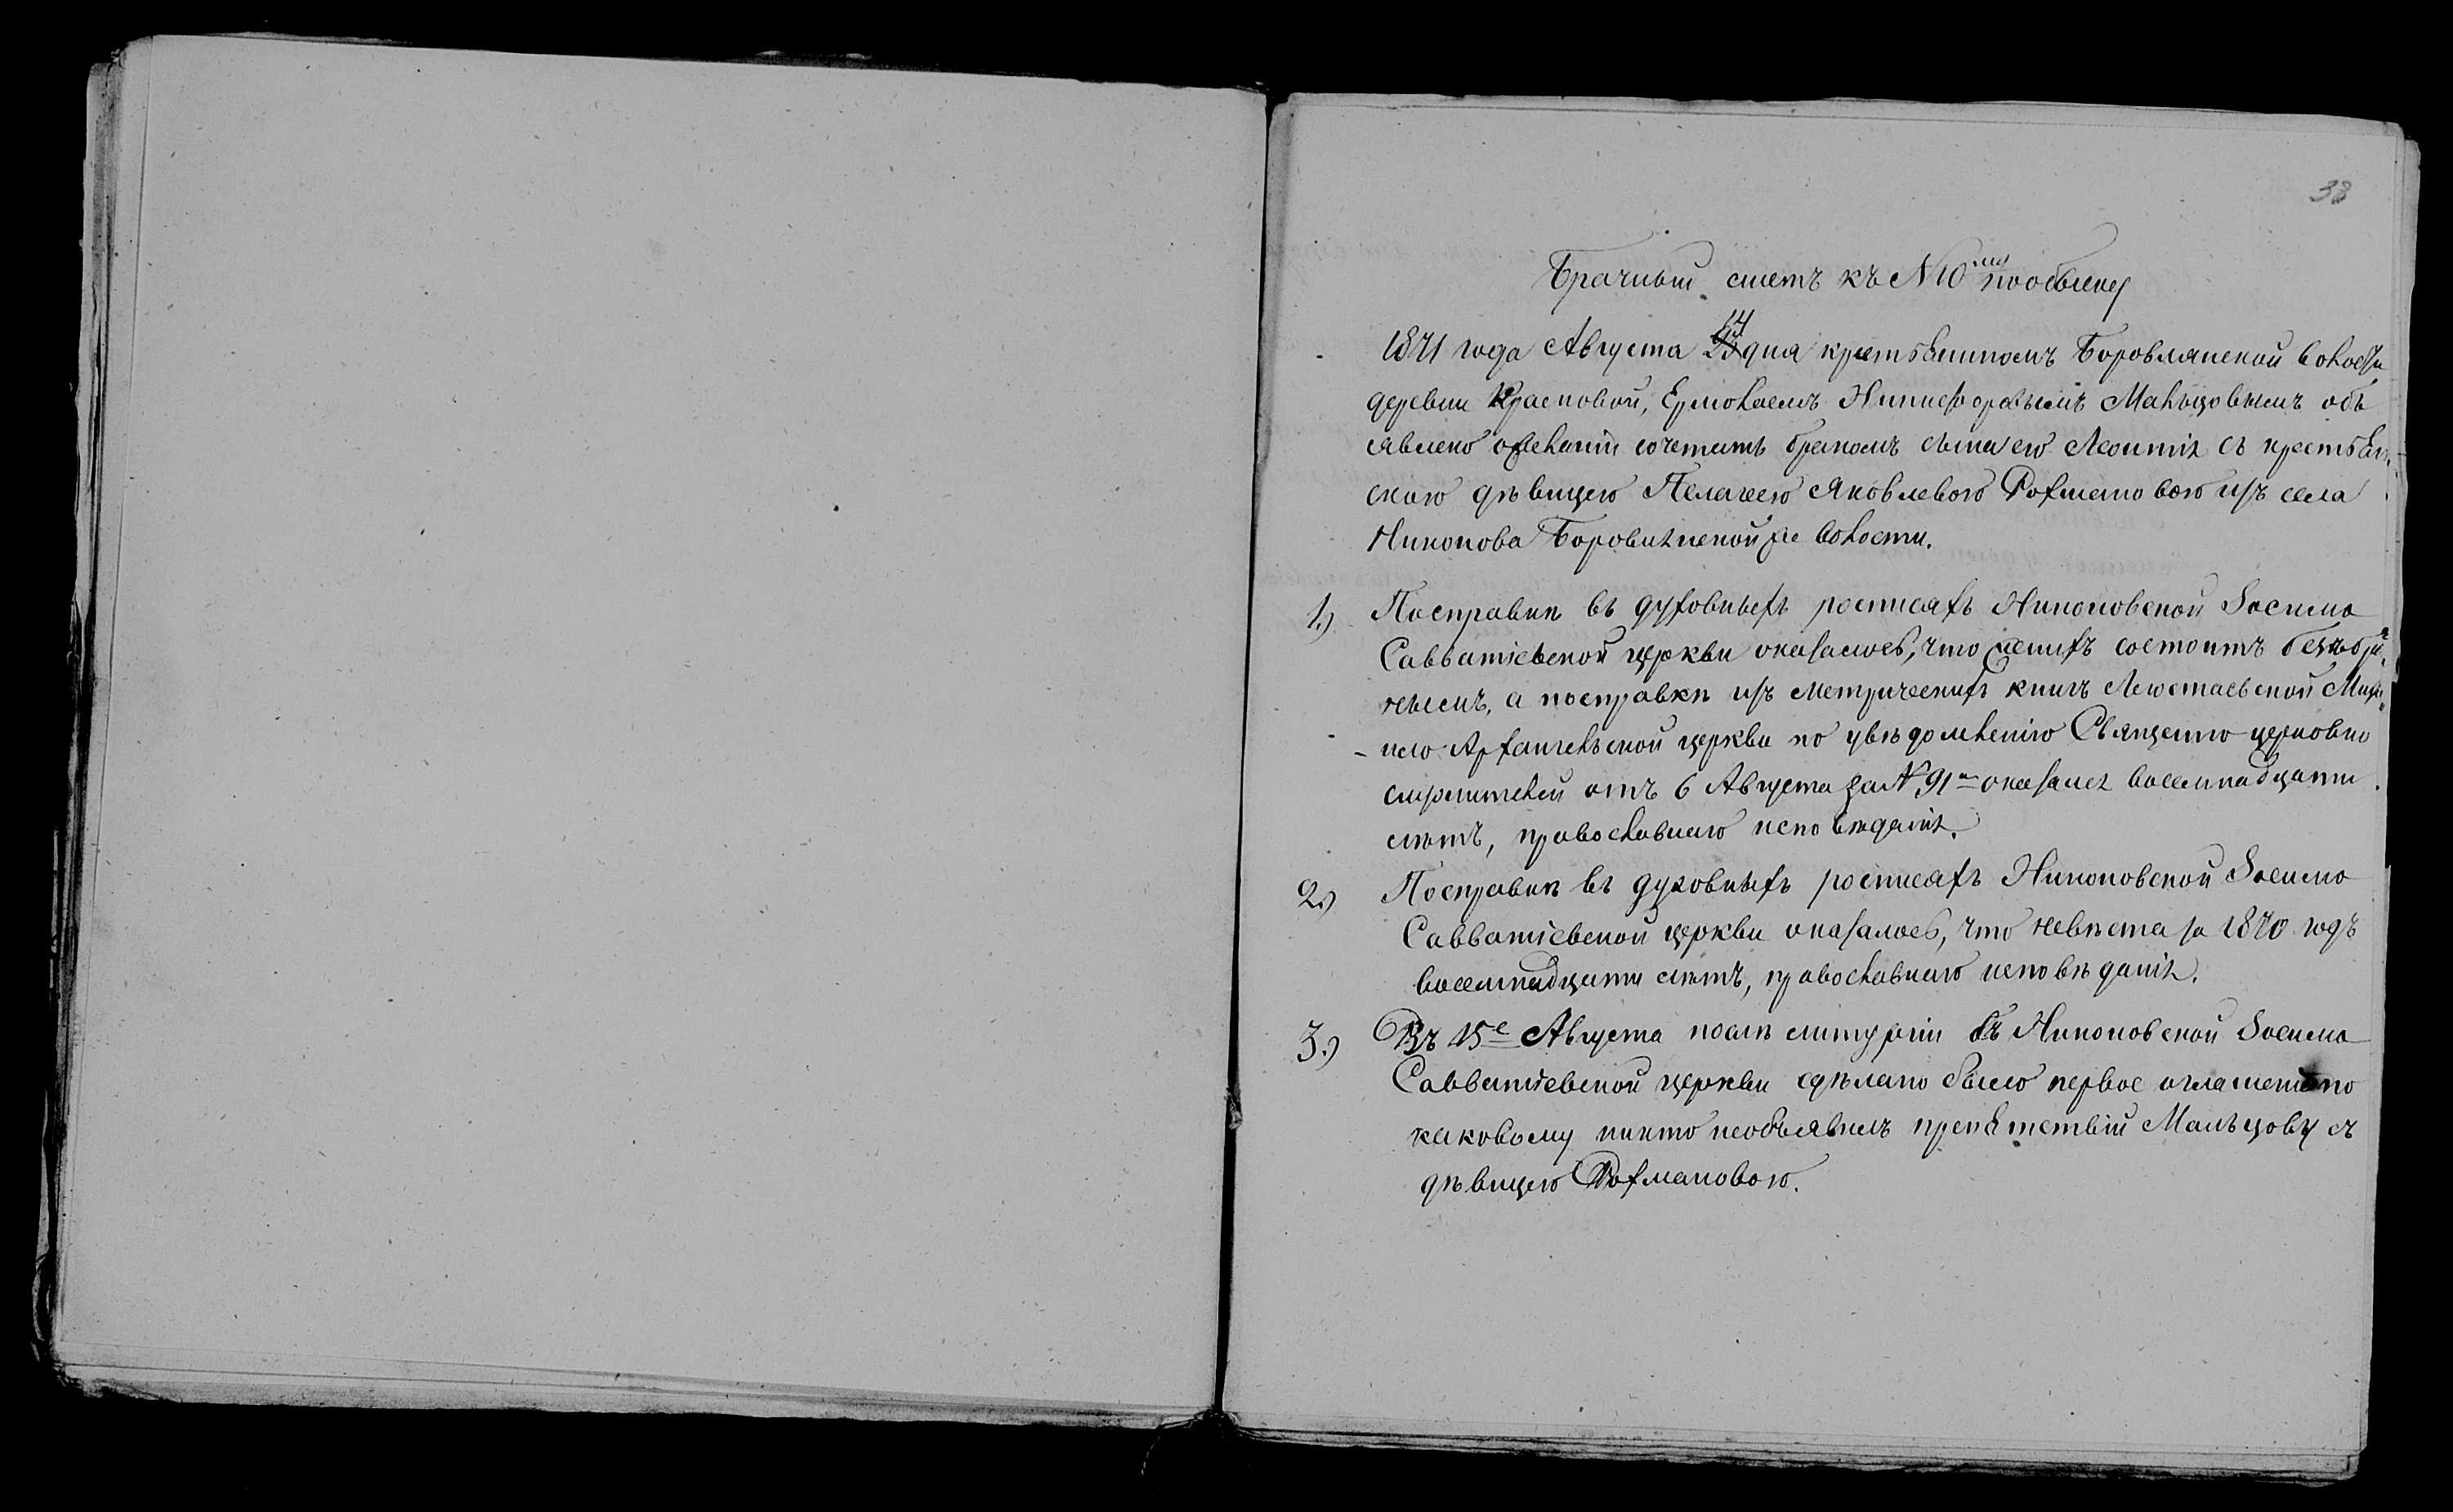 38
Брачный листъ къ N 10му пообыску
1871 года Августа 14 дня крестьяниномъ Боровлянской волости
деревни Красновой, Ермолаемъ Никифоровымъ Мальцовымъ объ
явлено ожеланіи сочетать бракомъ сына его Леонтія съ крестьян-
скою дѣвицею Пелагеею Яковлевою Рохмановою изъ села
Никонова Боровлянской же волости.
1.) Посправкѣ въ духовныхъ росписяхъ Никоновской Зосимо
Савватіевской церкви оказалось, что женихъ состоитъ
а посправкѣ изъ метрическихъ книгъ Михаи
ло-Архангельской церкви по увѣдомленію Священно-церковно
служителей отъ 6 Августа за N 91м оказался восемнадцати
лѣтъ, православнаго исповѣданія.
2.) Посправкѣ въ духовныхъ росписяхъ Никоновской Зосимо
Савватіевской церкви оказалось, что невѣста за 1870 годъ
восемнадцати лѣтъ, православнаго исповѣданія.
3.) Въ 15е Августа послѣ литургіи въ Никоновской Зосимо
Савватіевской церкви сдѣлано было первое оглашеніе по
каковому никто необъявилъ препятствій Мальцову съ
дѣвицею Рохмановою.